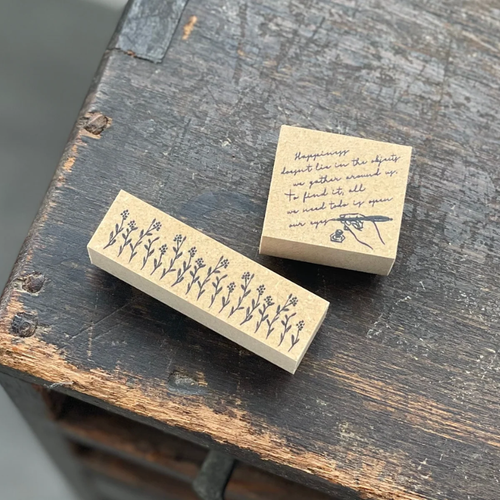 Happiness
doesn't lie in the objects
we gather around us.
to find it, all
we need todo is open
our eyes